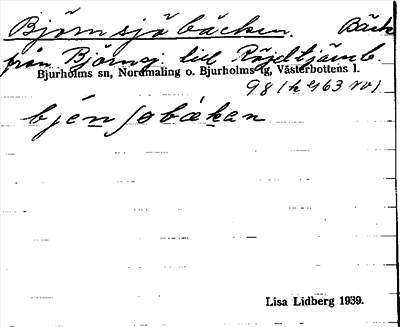 Björnsjöbäcken. Bäck
från Björnsj. till Röjdtjärnb.
Bjurholms sn, Nordmaling o. Bjurholms tg, Västerbottens l.
bjénʃobäkan
Lisa Lidberg 1939.